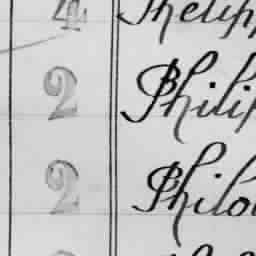 4 Phelipp
2 Philip
2 Philo